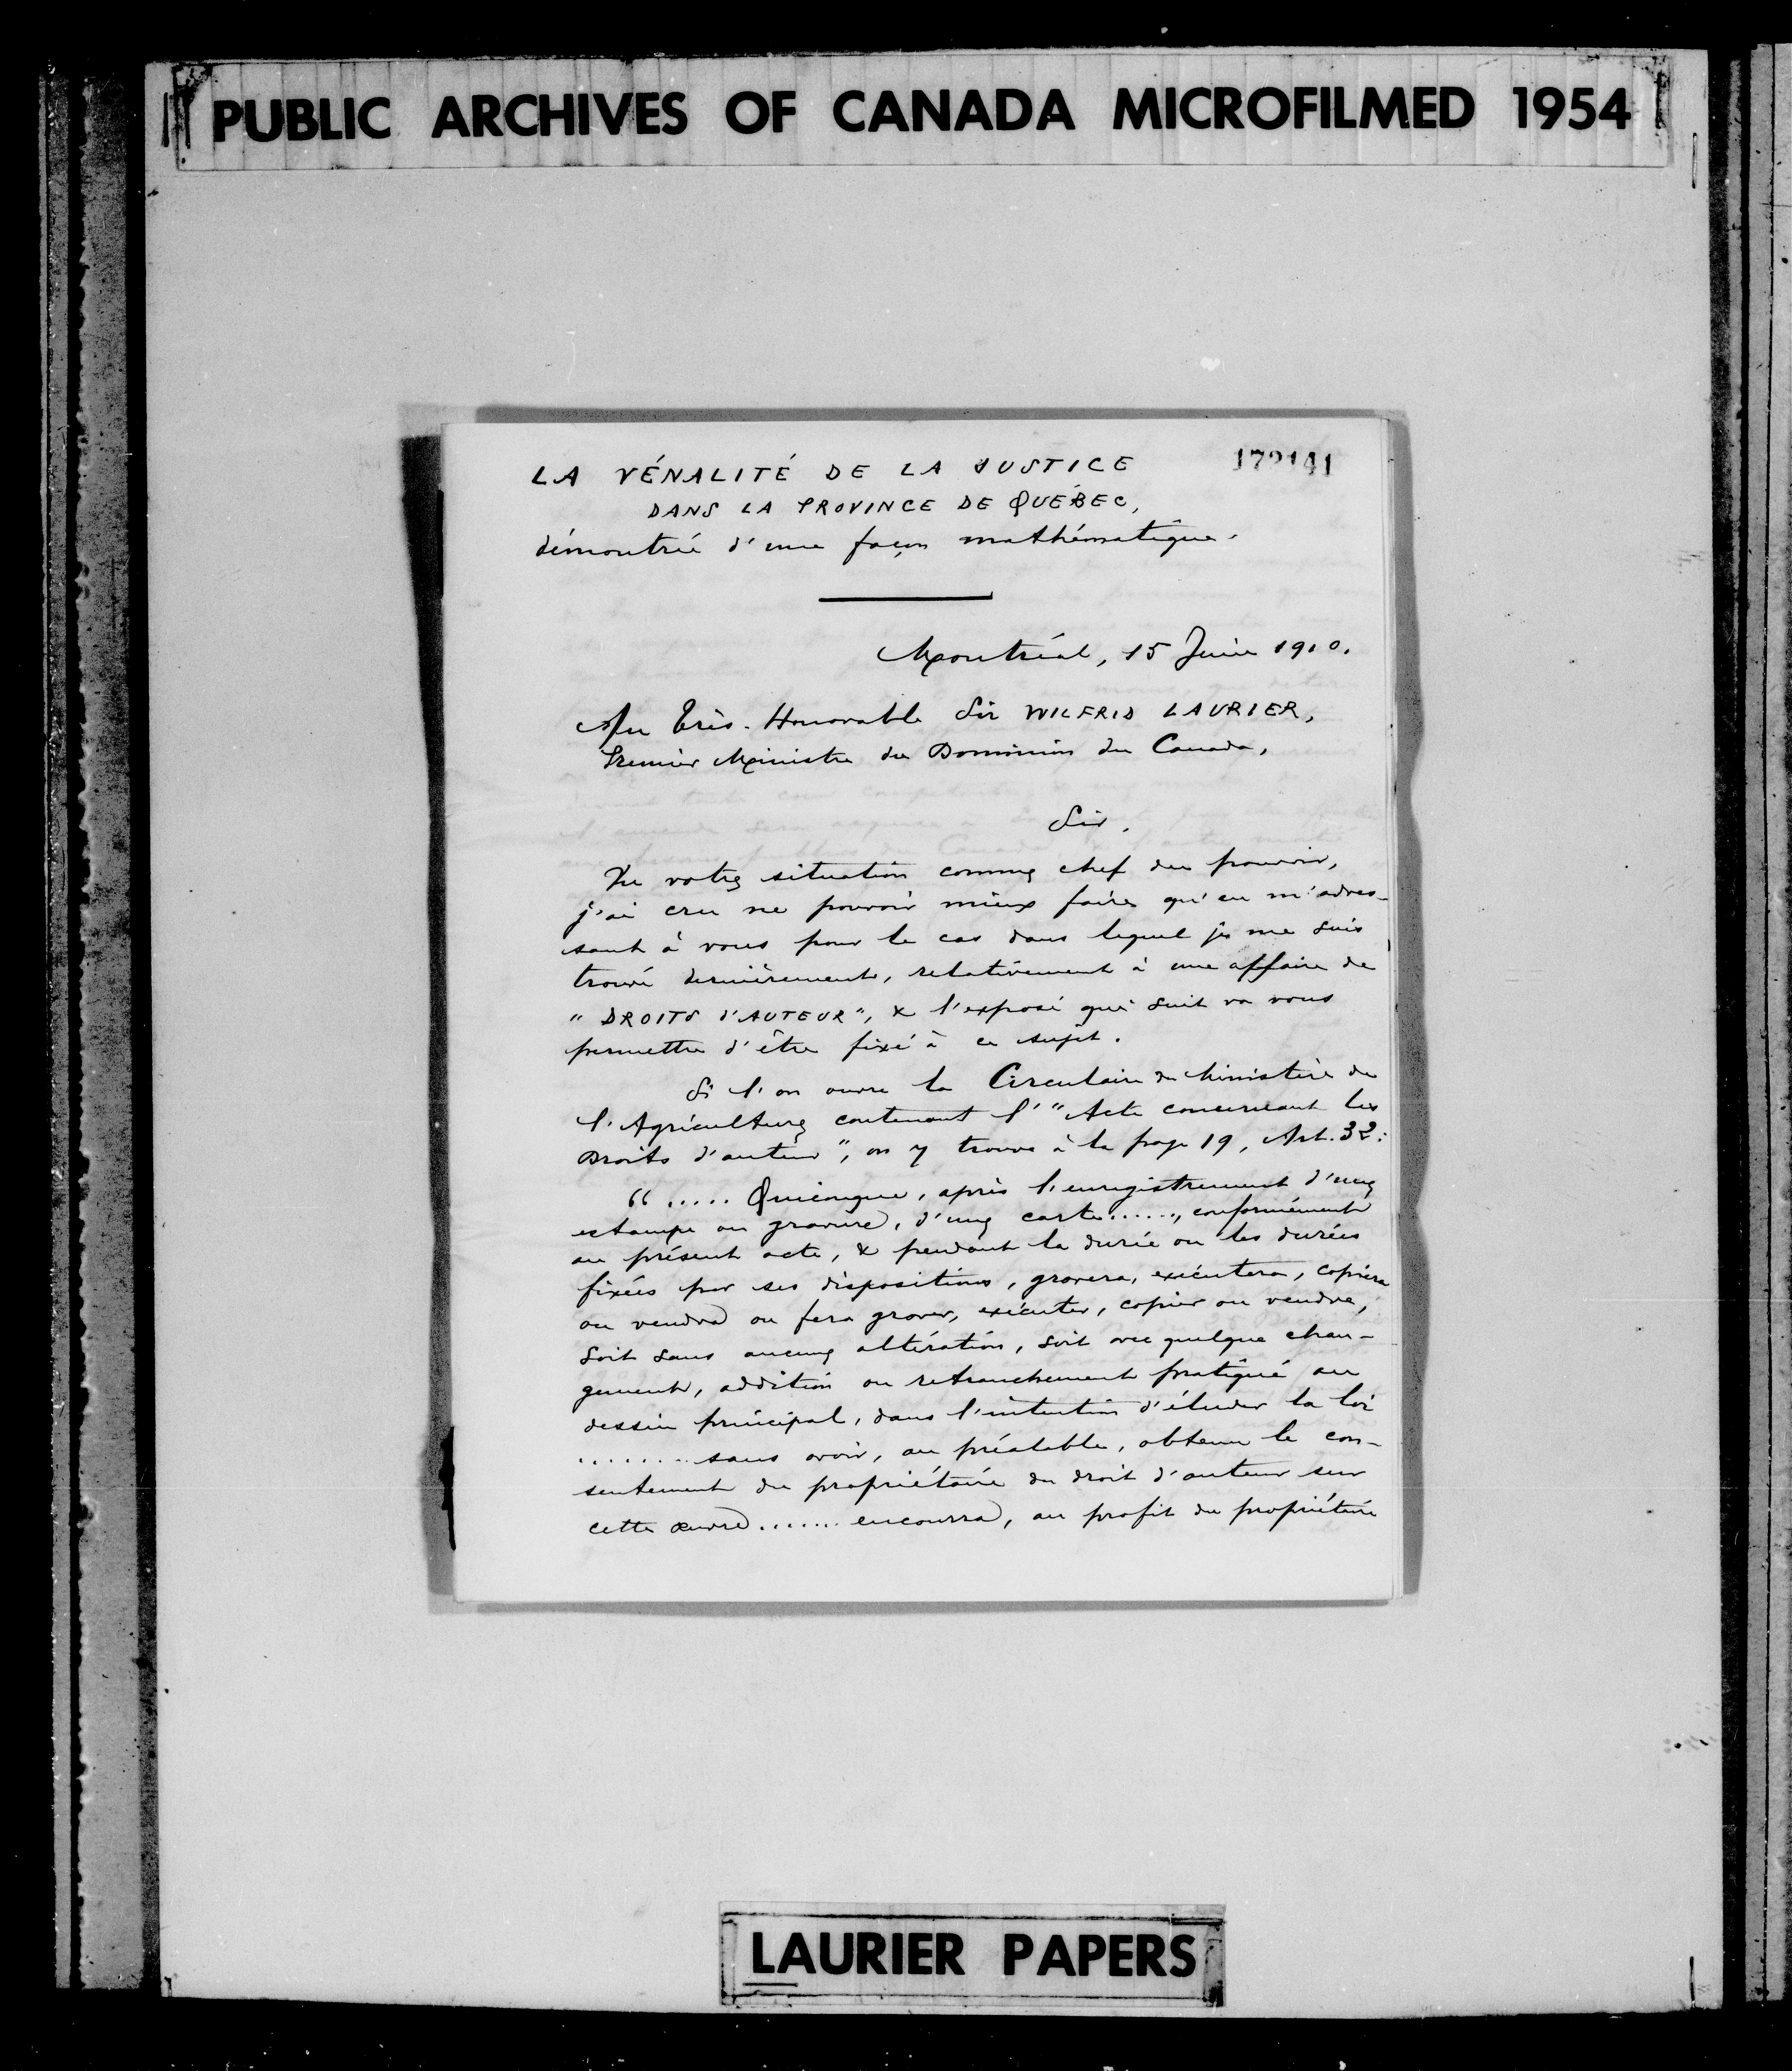 PUBLIC ARCHIVES OF CANADA MICROFILMED 1954
172141
LA VÉNALITÉ DE LA JUSTICE
DANS LA PROVINCE DE QUÉBEC,
démontrée d'une façon mathématique.
Montréal, 15 Juin 1910.
Au Très-Honorable Sir WILFRID LAURIER,
Premier Ministre du Dominion du Canada,
Sir,
Vu votre situation comme chef du pouvoir,
j'ai cru ne pouvoir mieux faire qu'en m'adres-
sant à vous pour le cas dans lequel je me suis
trouvé dernièrement, relativement à une affaire de
"DROITS D'AUTEUR", & l'exposé qui suit va vous
permettre d'être fixé à ce sujet.
Si l'on ouvre la Circulaire du Ministère de
l'Agriculture contenant l'"Acte concernant les
Droits d'auteur", on y trouve à la page 19, Art. 32:
"..... Quiconque, après l'enregistrement d'une
estampe ou gravure, d'une carte......, conformément
au présent acte, & pendant la durée ou les durées
fixées par ses dispositions, gravera, exécutera, copiera
ou vendra ou fera graver, exécuter, copier ou vendre,
soit sans aucune altération, soit avec quelque chan-
gement, addition ou retranchement pratiqué au
dessin principal, dans l'intention d'éluder la loi
........ sans avoir, au préalable, obtenu le con-
sentement du propriétaire du droit d'auteur sur
cette œuvre ....... encourra, au profit du propriétaire
LAURIER PAPERS